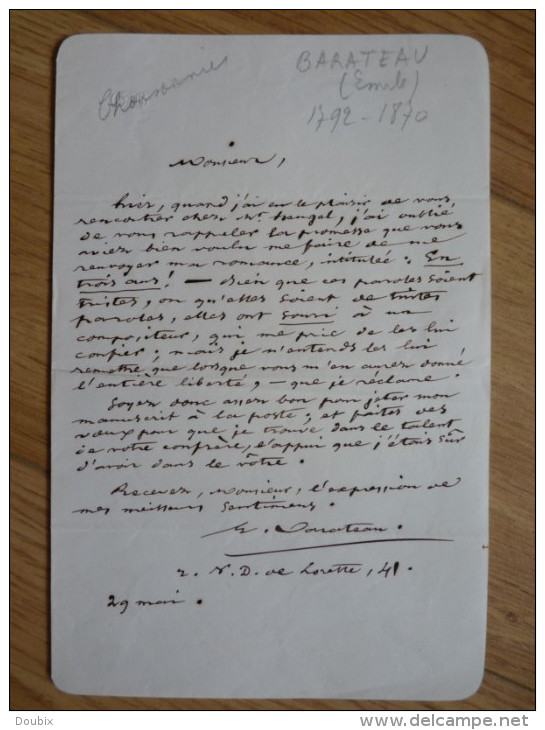 Chansonnier
BARATEAU
(Emile)
1792 - 1870
Monsieur,
hier, quand j'ai eu le plaisir de vous
rencontrer chez Mr. heugel, j'ai oublié
de vous rappeler la promesse que vous
aviez bien voulu me faire de me
renvoyer ma romance, intitulée : En
trois ans ! — Bien que ces paroles soient
tristes, ou qu'elles soient de tristes
paroles, elles ont souri à un
compositeur, qui me prie de les lui
confier ; mais je n'entends les lui
remettre que lorsque vous m'en aurez donné
l'entière liberté, — que je réclame.
Soyez donc assez bon pour jeter mon
manuscrit à la poste, et faites des
vœux pour que je trouve dans le talent
de votre confrère, l'appui que j'étais sûr
d'avoir dans le vôtre.
Recevez, Monsieur, l'expression de
mes meilleurs sentimens.
E. Barateau.
r. N. D. de Lorette, 41.
29 mai.
Doubix
www.delcampe.net